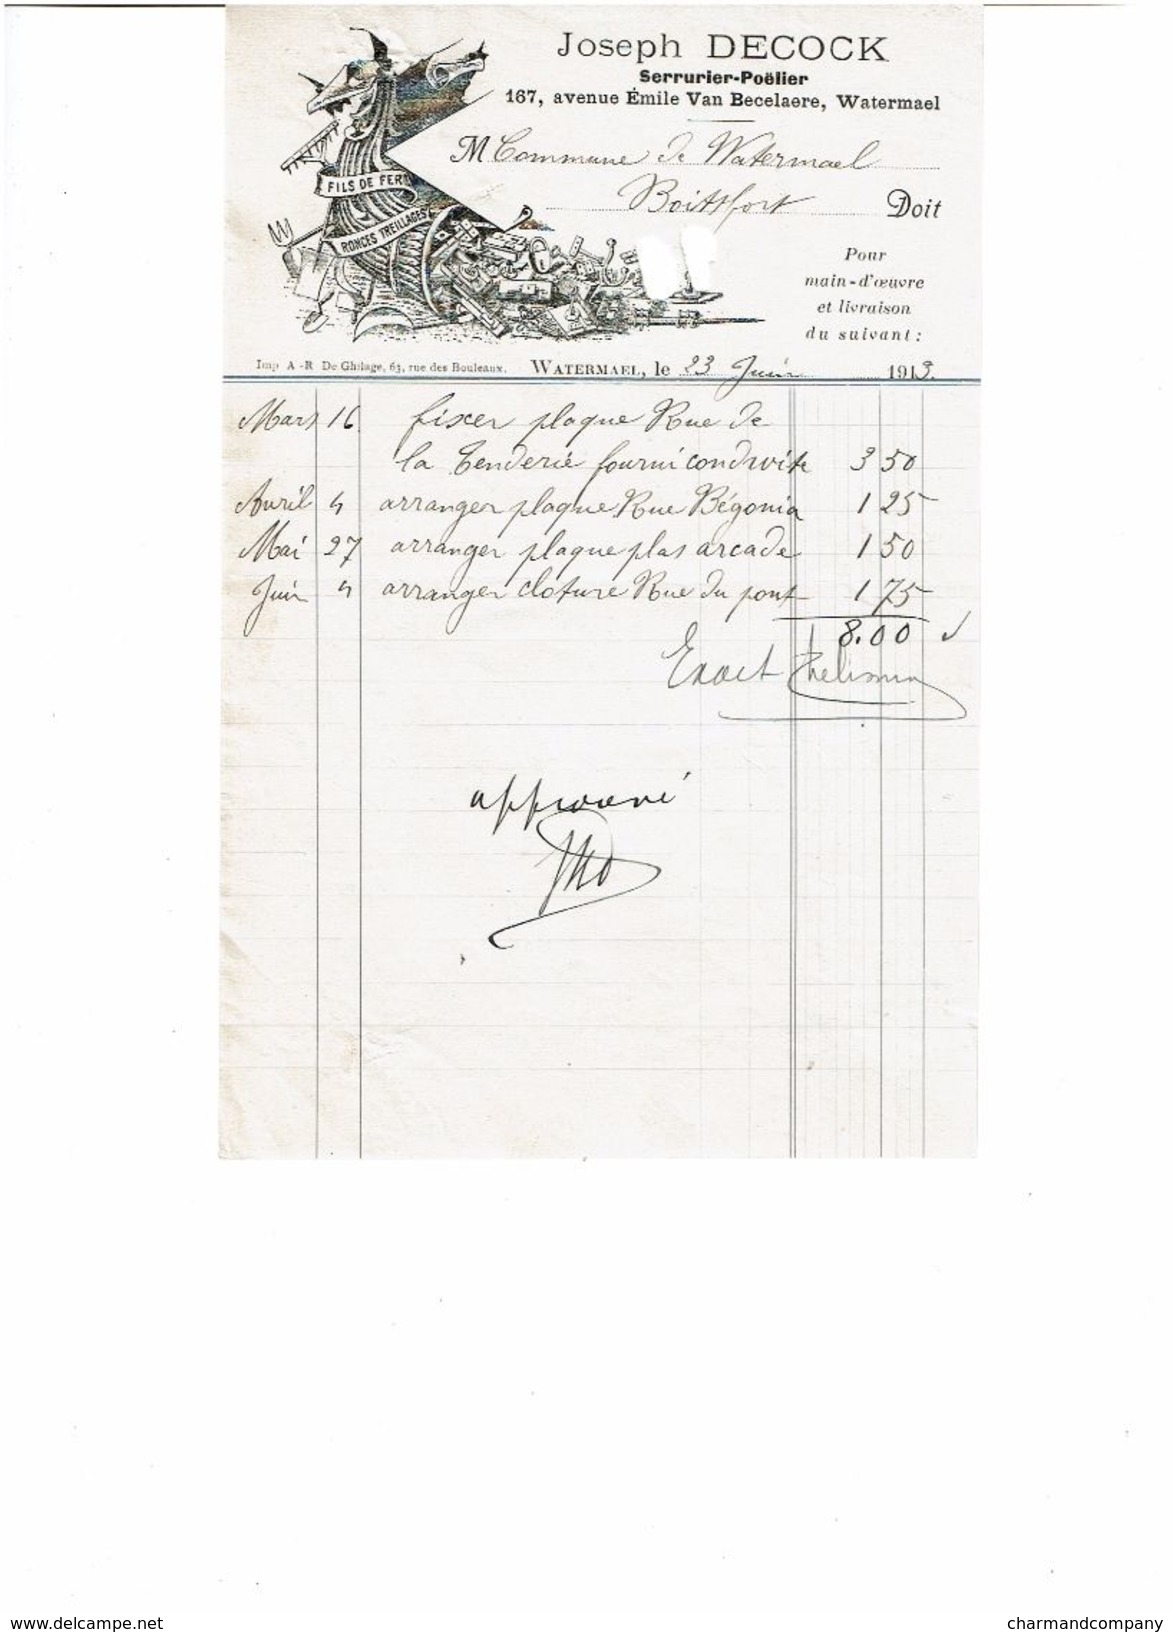 Joseph DECOCK
Serrurier-Poëlier
167, avenue Émile Van Becelaere, Watermael
M Commune de Watermael
Boitsfort Doit
FILS DE FER
RONCES TREILLAGES
Pour
main-d'œuvre
et livraison
du suivant :
Imp A.-R. De Ghilage, 63, rue des Bouleaux. WATERMAEL, le 23 Juin 1913.
Mars 16 fixer plaque Rue de
la Tenderie fourni conduite 3 50
Avril 4 arranger plaque Rue Bégonia 1 25
Mai 27 arranger plaque plas arcade 1 50
Juin 4 arranger cloture Rue du pont 1 75
8.00
Exact
approuvé
www.delcampe.net
charmandcompany